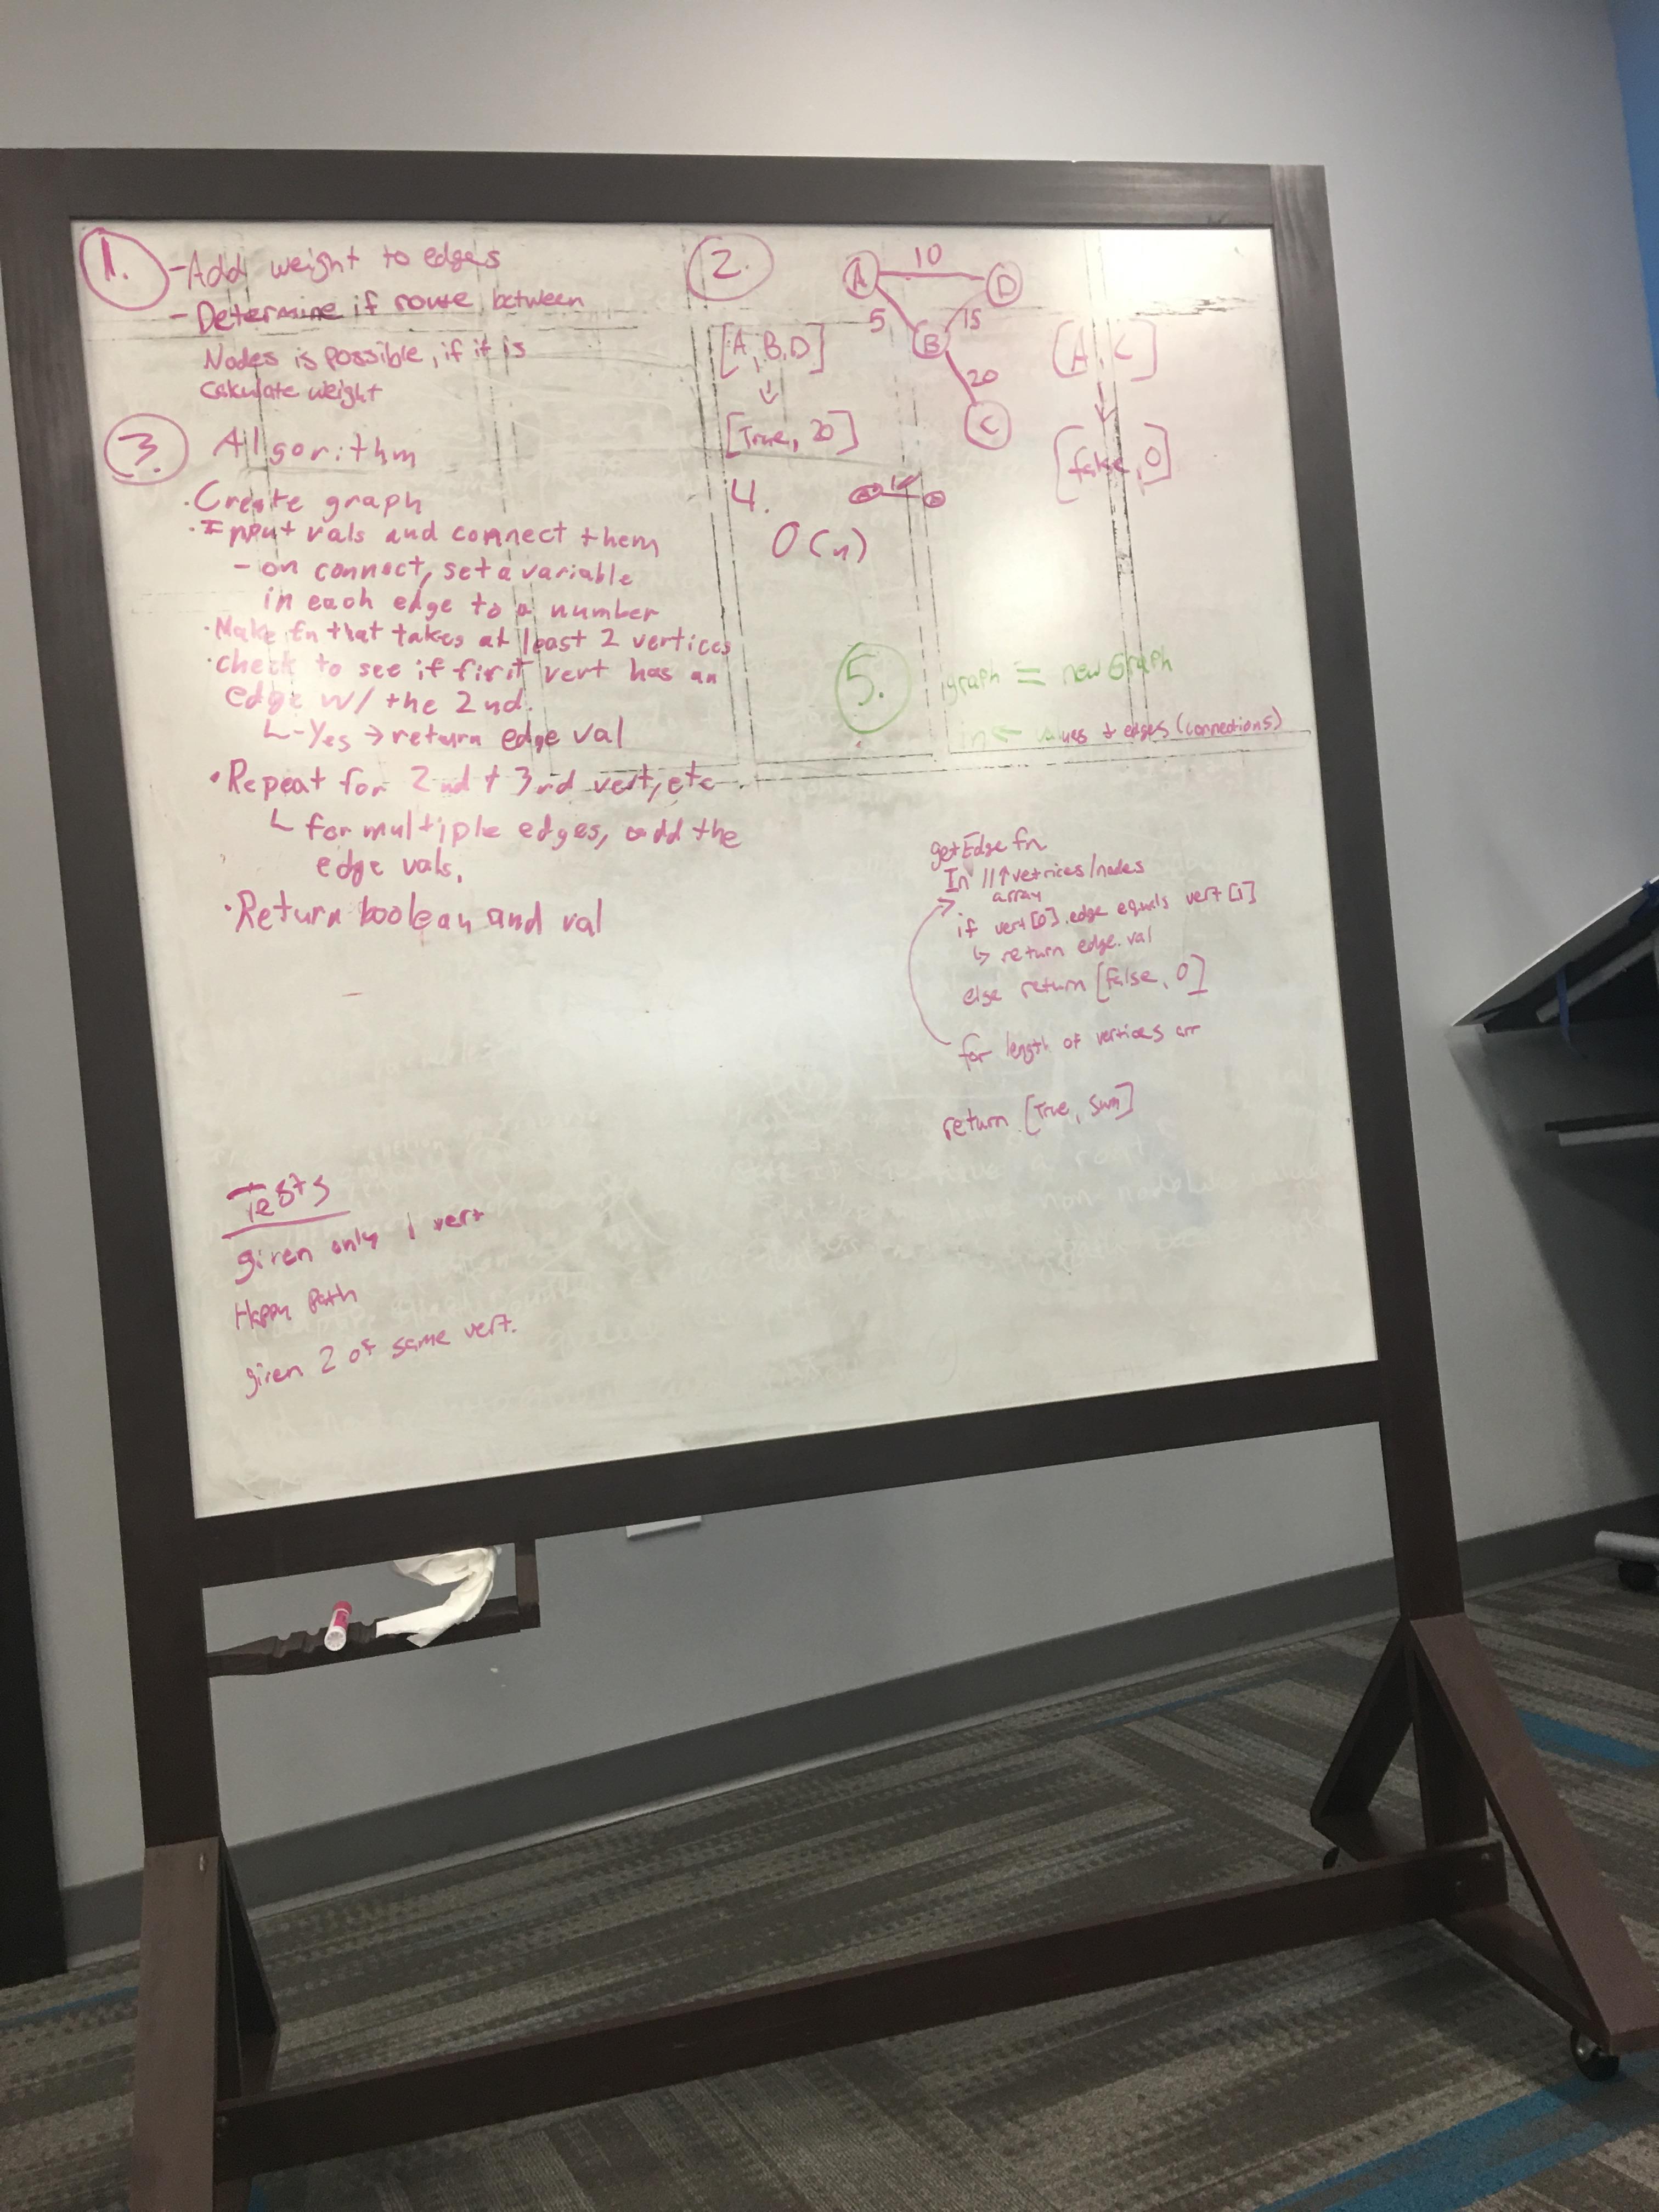 1.
-Add weight to edges
- Determine if route between
Nodes is possible, if it is
calculate weight
2.
A 10 D
5 15
B
20
C
[A, B, D]
[True, 20]
[A, C]
[false, 0]
3. Algorithm
· Create graph
· Input vals and connect them
- on connect, set a variable
in each edge to a number
· Make fn that takes at least 2 vertices
· check to see if first vert has an
edge w/ the 2nd.
-Yes → return edge val
· Repeat for 2nd + 3rd vert, etc
for multiple edges, add the
edge vals.
· Return boolean and val
4.
O(n)
5. graph = new Graph
in ← values + edges (connections)
getEdge fn
In // ↑ vetrices/nodes
array
if vert[0].edge equals vert[1]
↳ return edge.val
else return [false, 0]
for length of vertices arr
return [True, Sum]
Tests
given only 1 vert
Happy Path
given 2 of same vert.